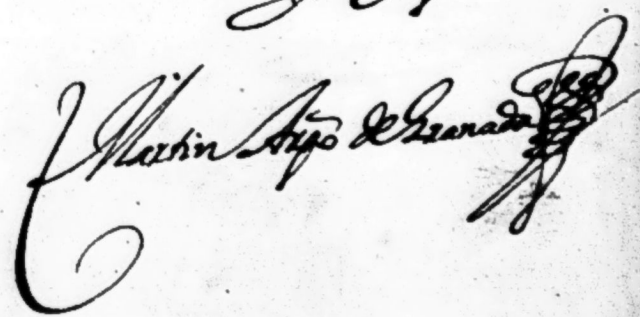 Martin Arpõ de Granada